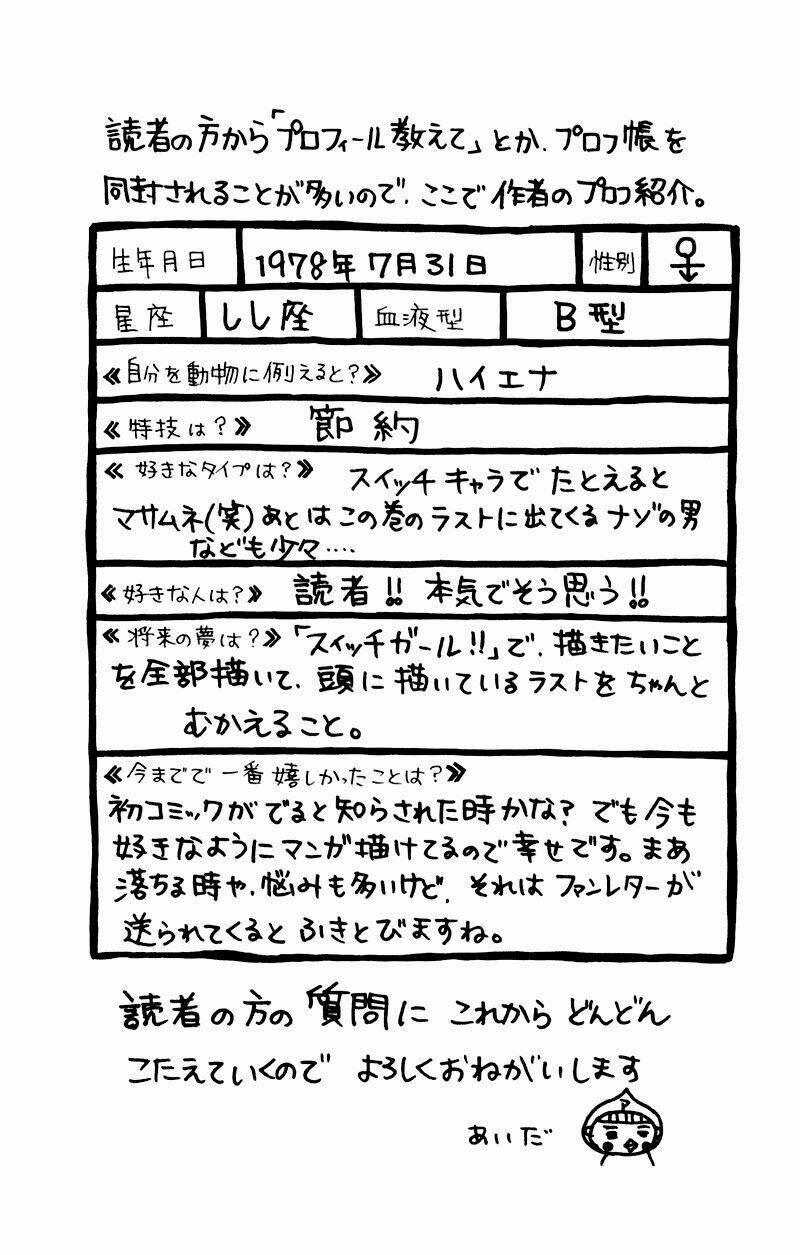 読者の方から「プロフィール教えて」とか、プロフ帳を
同封されることが多いので、ここで作者のプロフ紹介。
生年月日 1978年7月31日 性別 ♀
星座 しし座 血液型 B型
≪自分を動物に例えると?≫ ハイエナ
≪特技は?≫ 節約
≪好きなタイプは?≫ スイッチキャラでたとえると
マサムネ(笑)あとはこの巻のラストに出てくるナゾの男
なども少々‥‥
≪好きな人は?≫ 読者!! 本気でそう思う!!
≪将来の夢は?≫「スイッチガール!!」で、描きたいこと
を全部描いて、頭に描いているラストをちゃんと
むかえること。
≪今までで一番嬉しかったことは?≫
初コミックがでると知らされた時かな? でも今も
好きなようにマンガ描けてるので幸せです。まあ
落ちる時や、悩みも多いけど、それはファンレターが
送られてくるとふきとびますね。
読者の方の質問にこれからどんどん
こたえていくのでよろしくおねがいします
あいだ
ア